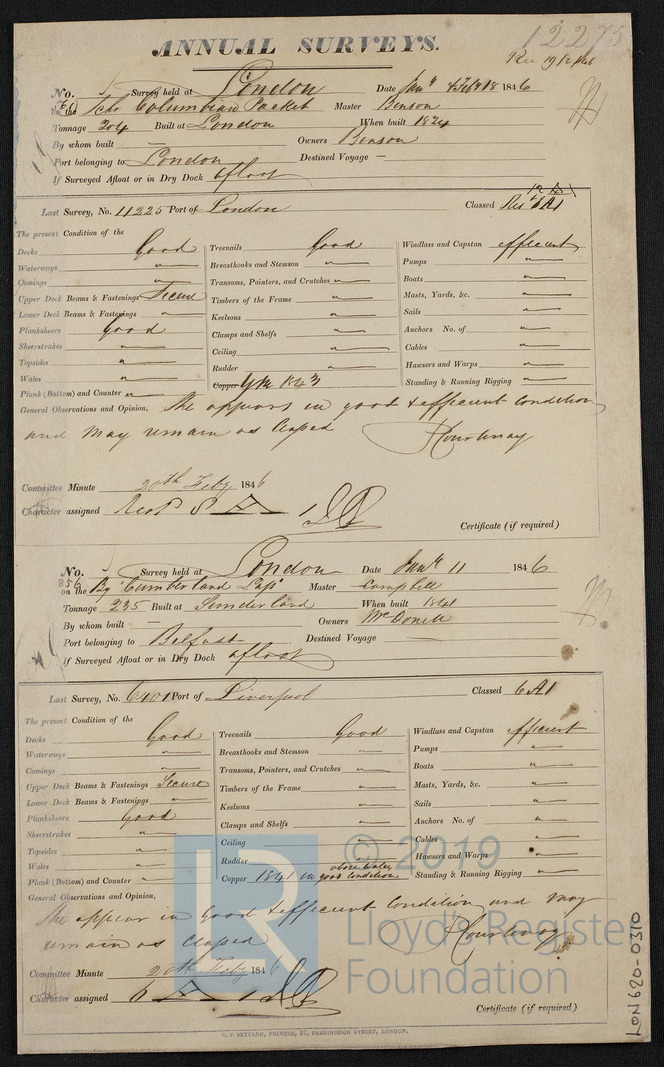 12275
ANNUAL SURVEYS.
Rec 19/2/46
No. 5 Survey held at London Date Jany & Feby 18 1846
on the Schr Columbian Packet Master Benson
Tonnage 204 Built at London When built 1824
By whom built — Owners Benson
Port belonging to London Destined Voyage —
If Surveyed Afloat or in Dry Dock afloat
Last Survey, No. 11225 Port of London Classed A1
The present Condition of the
Decks Good Treenails Good Windlass and Capstan efficient
Waterways " Breasthooks and Stemson " Pumps "
Comings " Transoms, Pointers, and Crutches " Boats "
Upper Deck Beams & Fastenings Secure Timbers of the Frame " Masts, Yards, &c. "
Lower Deck Beams & Fastenings " Keelsons " Sails "
Planksheers Good Clamps and Shelfs " Anchors No. of "
Sheerstrakes " Ceiling " Cables "
Topsides " Rudder " Hawsers and Warps "
Wales " Copper YM 1843 Standing & Running Rigging "
Plank (Bottom) and Counter "
General Observations and Opinion, She appears in good & efficient condition
and may remain as Classed
Courtenay
Committee Minute 20th Feby 1846
Character assigned
Certificate (if required)
No. 5 Survey held at London Date Jany 11 1846
856
on the Bg Cumberland Lass Master Campbell
Tonnage 235 Built at Sunderland When built 1841
By whom built — Owners McDonell
Port belonging to Belfast Destined Voyage
If Surveyed Afloat or in Dry Dock afloat
Last Survey, No. 6401 Port of Liverpool Classed 6 A1
The present Condition of the
Decks Good Treenails Good Windlass and Capstan efficient
Waterways " Breasthooks and Stemson " Pumps "
Comings " Transoms, Pointers, and Crutches " Boats "
Upper Deck Beams & Fastenings Secure Timbers of the Frame " Masts, Yards, &c. "
Lower Deck Beams & Fastenings " Keelsons " Sails "
Planksheers Good Clamps and Shelfs " Anchors No. of "
Sheerstrakes " Ceiling " Cables "
Topsides " Rudder " Hawsers and Warps "
Wales " Copper 1841 above water in good condition Standing & Running Rigging "
Plank (Bottom) and Counter "
General Observations and Opinion,
She appears in good & efficient condition and may
remain as Classed
Courtenay
Committee Minute 20th Feby 1846
Character assigned 6 A 1
Certificate (if required)
G. V. SETTANO, PRINTER, 27, FARRINGDON STREET, LONDON.
LON 620-0310
LR
© 2019
Lloyd's Register
Foundation